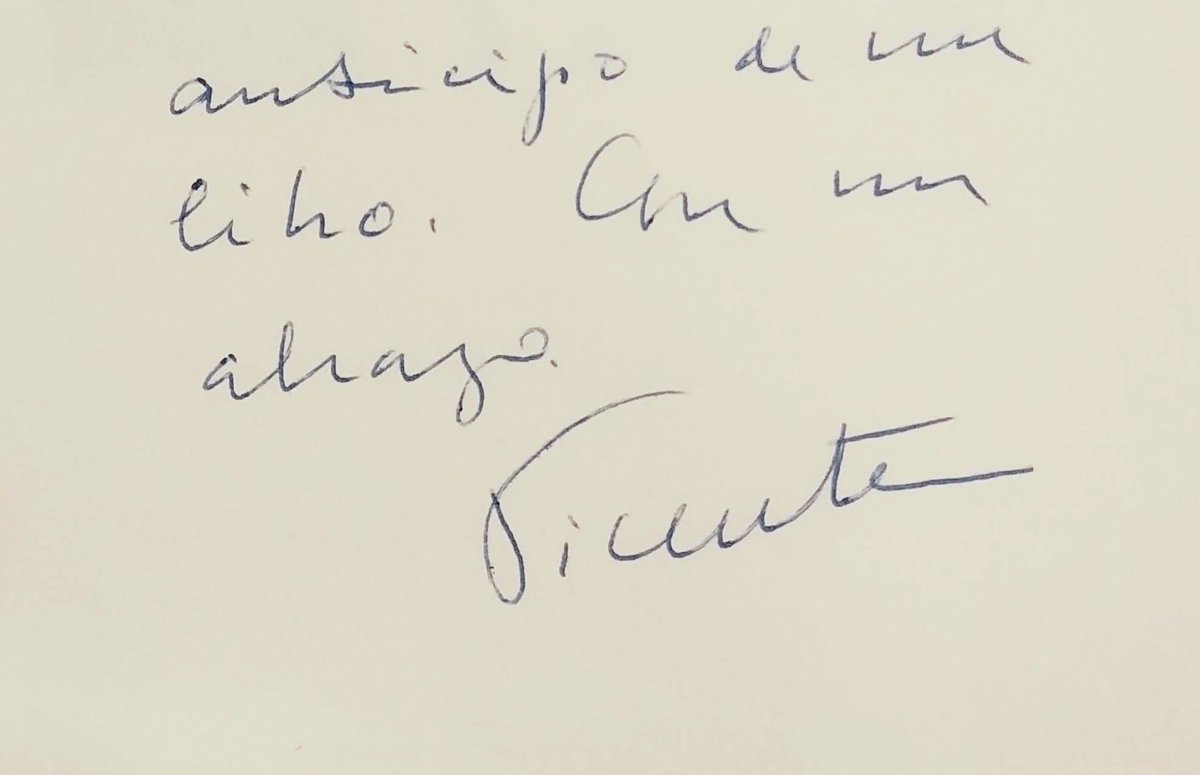 anticipo de un
libro. Con un
abrazo.
Vicente